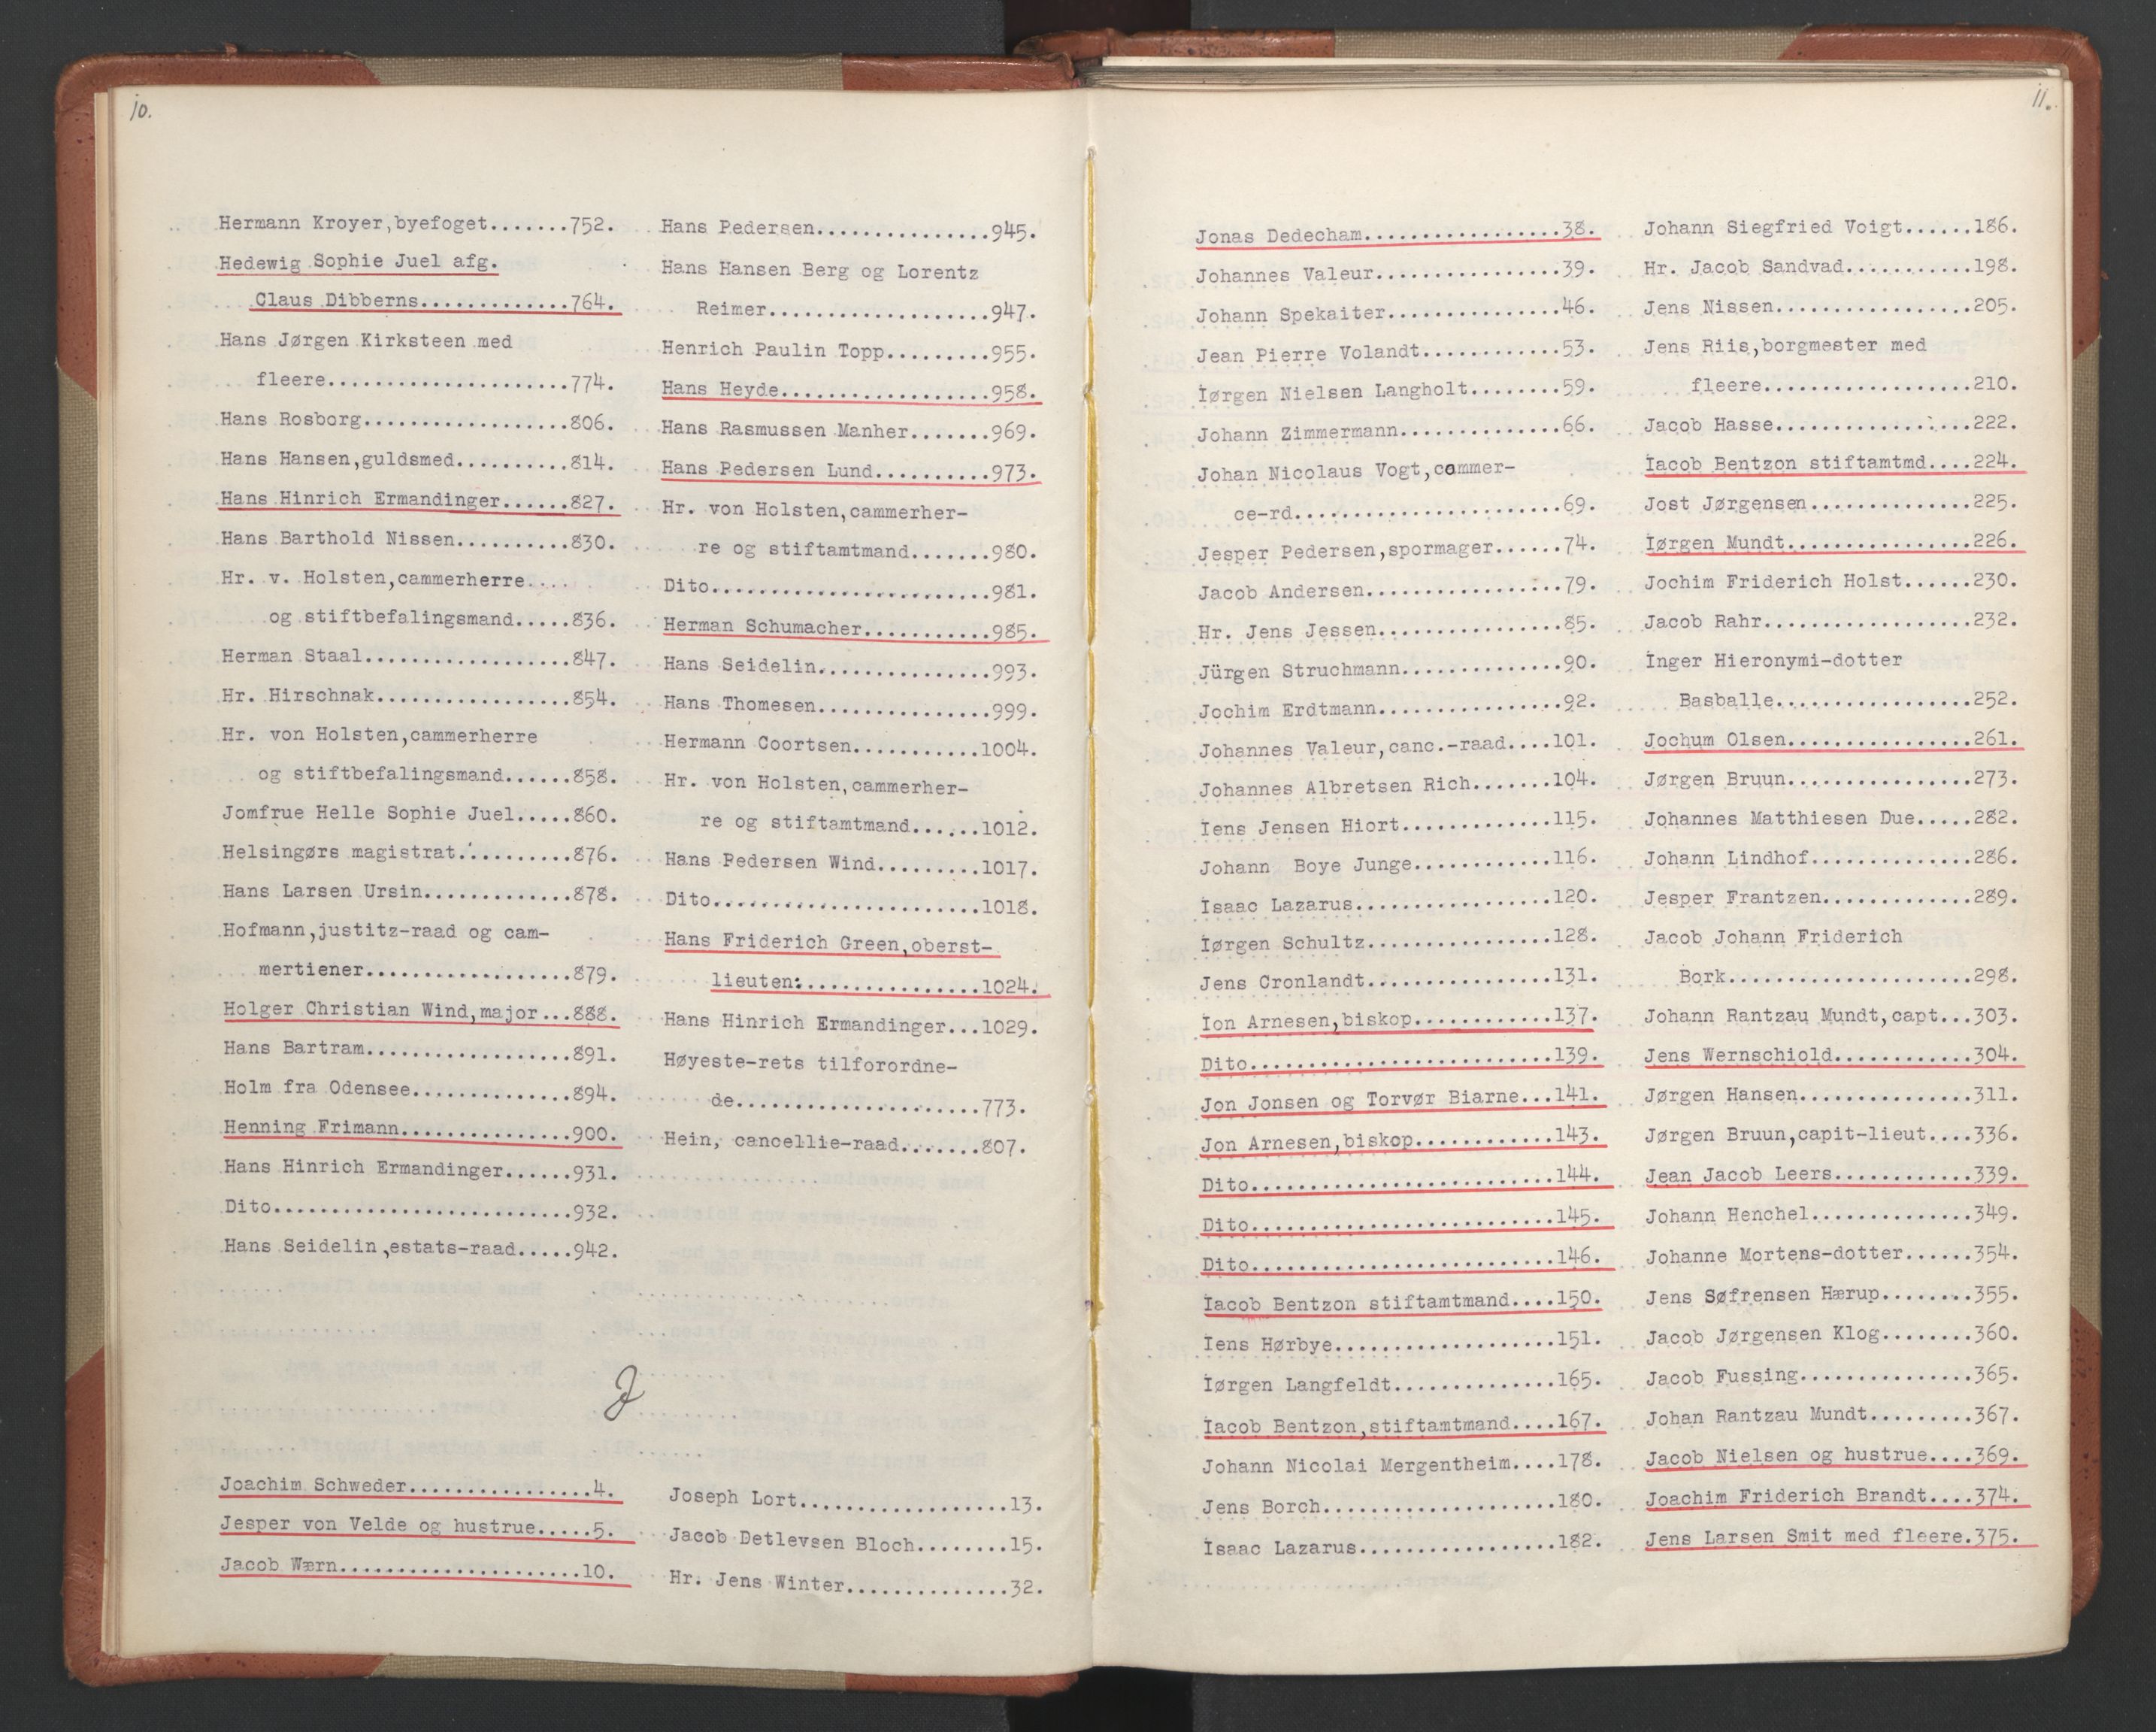 10.
Hermann Kroyer,byefoget.......752.
Hedewig Sophie Juel afg.
Claus Dibberns.............764.
Hans Jørgen Kirksteen med
fleere.....................774.
Hans Rosborg..................806.
Hans Hansen,guldsmed..........814.
Hans Hinrich Ermandinger......827.
Hans Barthold Nissen..........830.
Hr. v. Holsten,cammerherre....
og stiftbefalingsmand.....836.
Herman Staal..................847.
Hr. Hirschnak.................854.
Hr. von Holsten,cammerherre
og stiftbefalingsmand......858.
Jomfrue Helle Sophie Juel.....860.
Helsingørs magistrat..........876.
Hans Larsen Ursin.............878.
Hofmann,justitz-raad og cam-
mertiener..................879.
Holger Christian Wind,major...888.
Hans Bartram..................891.
Holm fra Odensee..............894.
Henning Frimann...............900.
Hans Hinrich Ermandinger......931.
Dito..........................932.
Hans Seidelin,estats-raad.....942.
Hans Pedersen...............945.
Hans Hansen Berg og Lorentz
Reimer...................947.
Henrich Paulin Topp.........955.
Hans Heyde..................958.
Hans Rasmussen Manher.......969.
Hans Pedersen Lund..........973.
Hr. von Holsten,cammerher-
re og stiftamtmand.......980.
Dito........................981.
Herman Schumacher...........985.
Hans Seidelin...............993.
Hans Thomesen...............999.
Hermann Coortsen...........1004.
Hr. von Holsten,cammerher-
re og stiftamtmand......1012.
Hans Pedersen Wind.........1017.
Dito.......................1018.
Hans Friderich Green,oberst-
lieuten:...............1024.
Hans Hinrich Ermandinger...1029.
Høyeste-rets tilforordne-
de.....................773.
Hein, cancellie-raad.......807.
J
Joachim Schweder................4.
Jesper von Velde og hustrue.....5.
Jacob Wærn.....................10.
Joseph Lort..................13.
Jacob Detlevsen Bloch........15.
Hr. Jens Winter..............32.
11.
Jonas Dedecham.................38.
Johannes Valeur................39.
Johann Spekaiter...............46.
Jean Pierre Volandt............53.
Iørgen Nielsen Langholt........59.
Johann Zimmermann..............66.
Johan Nicolaus Vogt,commer-
ce-rd.......................69.
Jesper Pedersen,spormager......74.
Jacob Andersen.................79.
Hr. Jens Jessen................85.
Jürgen Struchmann..............90.
Jochim Erdtmann................92.
Johannes Valeur,canc.-raad....101.
Johannes Albretsen Rich.......104.
Iens Jensen Hiort.............115.
Johann  Boye Junge............116.
Isaac Lazarus.................120.
Iørgen Schultz................128.
Jens Cronlandt................131.
Ion Arnesen,biskop............137.
Dito..........................139.
Jon Jonsen og Torvør Biarne...141.
Jon Arnesen,biskop............143.
Dito..........................144.
Dito..........................145.
Dito..........................146.
Iacob Bentzon stiftamtmand....150.
Iens Hørbye...................151.
Iørgen Langfeldt..............165.
Iacob Bentzon,stiftamtmand....167.
Johann Nicolai Mergentheim....178.
Jens Borch....................180.
Isaac Lazarus.................182.
Johann Siegfried Voigt......186.
Hr. Jacob Sandvad...........198.
Jens Nissen.................205.
Jens Riis,borgmester med
fleere..................210.
Jacob Hasse.................222.
Iacob Bentzon stiftamtmd....224.
Jost Jørgensen..............225.
Iørgen Mundt................226.
Jochim Friderich Holst......230.
Jacob Rahr..................232.
Inger Hieronymi-dotter
Basballe.................252.
Jochum Olsen................261.
Jørgen Bruun................273.
Johannes Matthiesen Due.....282.
Johann Lindhof..............286.
Jesper Frantzen.............289.
Jacob Johann Friderich
Bork.....................298.
Johann Rantzau Mundt,capt...303.
Jens Wernschiold............304.
Jørgen Hansen...............311.
Jørgen Bruun,capit-lieut....336.
Jean Jacob Leers............339.
Johann Henchel..............349.
Johanne Mortens-dotter......354.
Jens Søfrensen Hærup........355.
Jacob Jørgensen Klog........360.
Jacob Fussing...............365.
Johan Rantzau Mundt.........367.
Jacob Nielsen og hustrue....369.
Joachim Friderich Brandt....374.
Jens Larsen Smit med fleere.375.